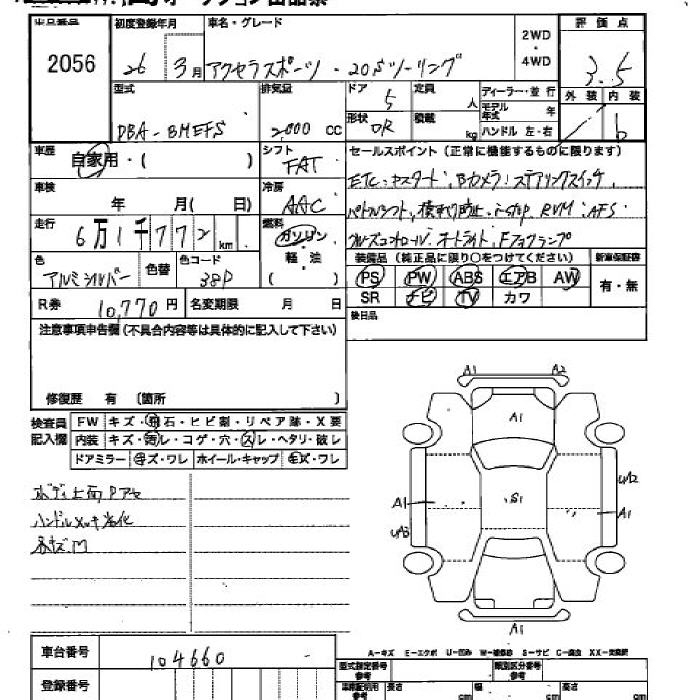 出品番号 初度登録年月 車名・グレード 2WD・4WD 評価点
2056 26 3月 アクセラスポーツ・20Sツーリング 3.5
型式 排気量 ドア 5 定員 人 ディーラー・並行 外装 内装
モデル年式 年
DBA-BMEFS 2,000 cc 形状 OR 積載 kg ハンドル 左・右 b
車歴 自家用・( ) シフト FAT セールスポイント(正常に機能するものに限ります)
車検 年 月( 日) 冷房 AAC ETC.キセスタート,Bカメラ,ステアリングスイッチ,
走行 6万1千772km 燃料 ガソリン・軽・油 ( ) パドルシフト,横すべり防止.i-stop RVM.AFS
クルーズコントロール.オートライト,Fフォグランプ
色 アルミシルバー 色替 色コード 38P 装備品(純正品に限り○をつけてください) 新車保証書
PS PW ABS エアB AW 有・無
R券 10,770円 名変期限 月 日 SR ナビ TV カワ
注意事項申告欄(不具合内容等は具体的に記入して下さい) 後日品
修復歴 有 〔箇所 〕
検査員記入欄 FW キズ・飛石・ヒビ割・リペア跡・X要
内装 キズ・汚レ・コゲ・穴・スレ・ヘタリ・破レ
ドアミラー キズ・ワレ ホイール・キャップ キズ・ワレ
ボディ上面Pアセ
ハンドルメッキ劣化
小キズM
A1 A2
A1
S1
A1 A1
A1
A-キズ E-エクボ U-凹み W-補修跡 S-サビ C-腐食 XX-交換済
車台番号 104660 型式指定番号 類別区分番号
登録番号 車庫証明用参考 長さ cm 幅 cm 高さ cm